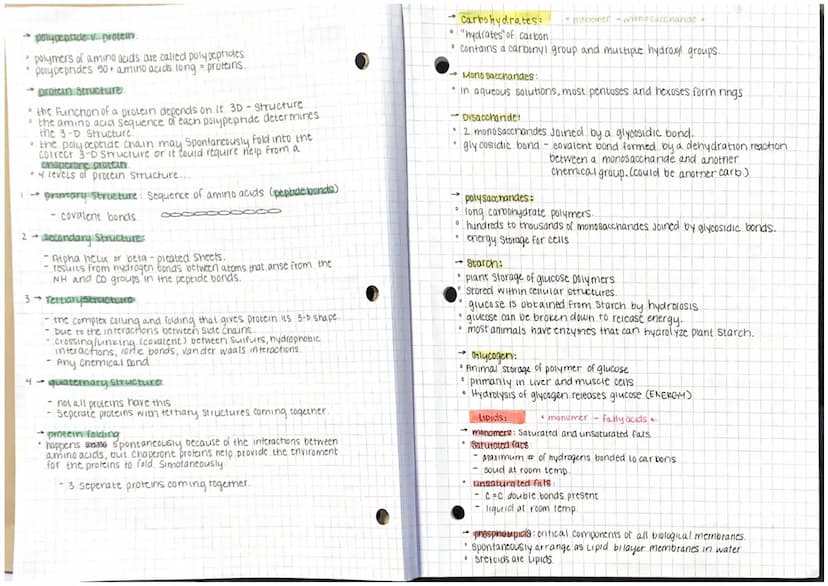 → polypeptide v. protein
° polymers of amino acids are called polypeptides
° polypeptides 50+ amino acids long = proteins.
→ protein structure:
° the function of a protein depends on it 3D - structure
° the amino acid sequence of each polypeptide determines
the 3-D structure.
° the polypeptide chain may spontaneously fold into the
correct 3-D structure or it could require help from a
chaperone protein
° 4 levels of protein structure...
1 → primary structure: sequence of amino acids (peptide bonds)
- covalent bonds
2 → Secondary structure:
- Alpha helix or beta-pleated sheets.
- results from hydrogen bonds between atoms that arise from the
NH and CO groups in the peptide bonds.
3 → Tertiary structure:
- the complex coiling and folding that gives protein its 3-D shape.
- Due to the interactions between side chains.
- crossing/linking (covalent) between sulfurs, hydrophobic
interactions, ionic bonds, van der waals interactions.
- Any chemical bond.
4 → quaternary structure:
- not all proteins have this
- Seperate proteins with tertiary structures coming together.
→ protein folding
° happens spontaneously because of the interactions between
amino acids, but chaperone proteins help provide the enviroment
for the proteins to fold. Simotaneously.
- 3 seperate proteins coming together.
→ Carbohydrates: * monomer - monosaccharide *
° "hydrates" of carbon
° contains a carbonyl group and multiple hydroxyl groups.
→ Monosaccharides:
° in aqueous solutions, most pentoses and hexoses form rings
→ Disaccharide:
° 2 monosaccharides joined by a glycosidic bond.
° glycosidic bond - covalent bond formed by a dehydration reaction
between a monosaccharide and another
chemical group. (could be another carb.)
→ polysaccharides:
° long carbohydrate polymers.
° hundreds to thousands of monosaccharides joined by glycosidic bonds.
° energy storage for cells
→ Starch:
° plant storage of glucose polymers
° stored within cellular structures.
° glucose is obtained from starch by hydrolosis
° glucose can be broken down to release energy.
° most animals have enzymes that can hydrolyze plant starch.
→ Glycogen:
° Animal storage of polymer of glucose
° primarily in liver and muscle cells
° Hydrolysis of glycogen releases glucose (ENERGY)
Lipids: * monomer - fatty acids *
→ monomers: saturated and unsaturated fats
° saturated fats
- maximum # of hydrogens bonded to carbons
- solid at room temp.
° unsaturated fats:
- C=C double bonds present
- liquid at room temp.
→ phospholipids: critical components of all biological membranes.
° spontaneously arrange as lipid bilayer membranes in water
° steroids are lipids.